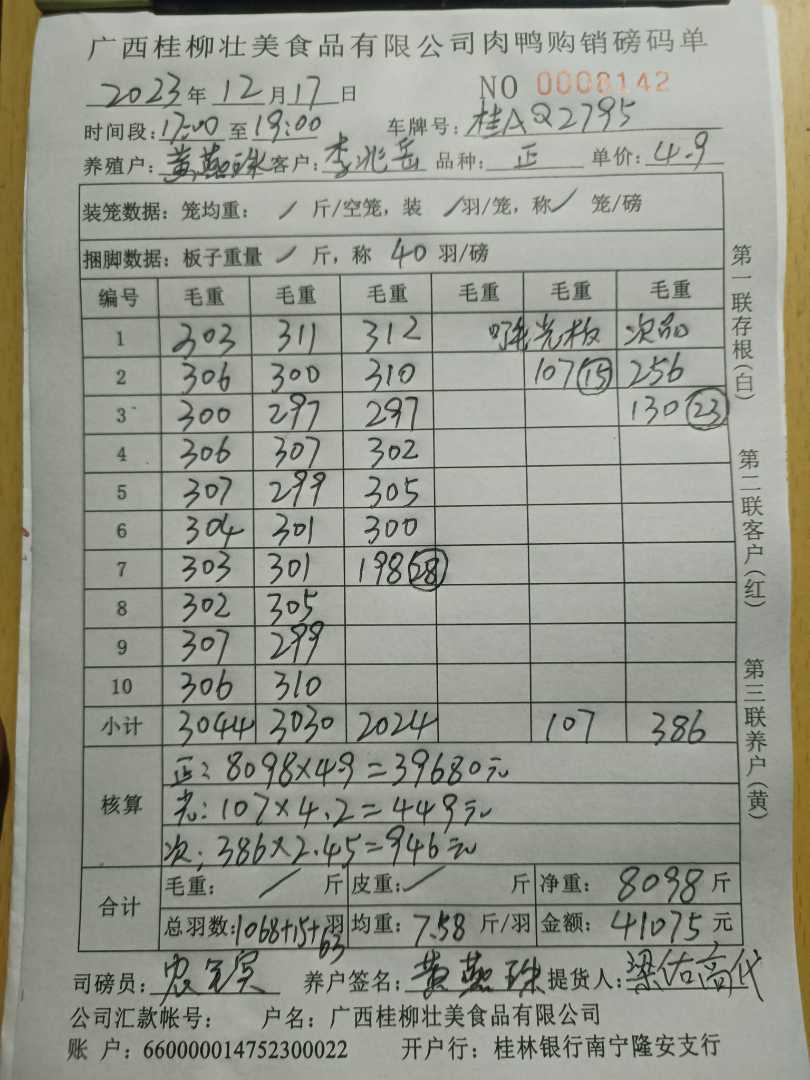 广西桂柳壮美食品有限公司肉鸭购销磅码单
2023年12月17日 NO 0008142
时间段:17:00至19:00 车牌号:桂AQ2795
养殖户:黄燕珠 客户:李兆岳 品种:正 单价:4.9
装笼数据:笼均重: / 斤/空笼,装 /羽/笼,称/ 笼/磅
捆脚数据:板子重量 / 斤,称 40 羽/磅
编号 毛重 毛重 毛重 毛重 毛重 毛重
1 303 311 312 光板 次品
2 306 300 310 107(15) 256
3 300 297 297 130(23)
4 306 307 302
5 307 299 305
6 304 301 300
7 303 301 198(28)
8 302 305
9 307 299
10 306 310
小计 3044 3030 2024 107 386
核算 正:8098×4.9=39680元
光:107×4.2=449元
次:386×2.45=946元
合计 毛重: / 斤 皮重:/ 斤 净重: 8098斤
总羽数:1068+15+63羽 均重:7.58斤/羽 金额:41075元
司磅员: 养户签名:黄燕珠 提货人:梁佑高代
公司汇款帐号: 户名:广西桂柳壮美食品有限公司
账 户:660000014752300022 开户行:桂林银行南宁隆安支行
第一联存根(白)
第二联客户(红)
第三联养户(黄)